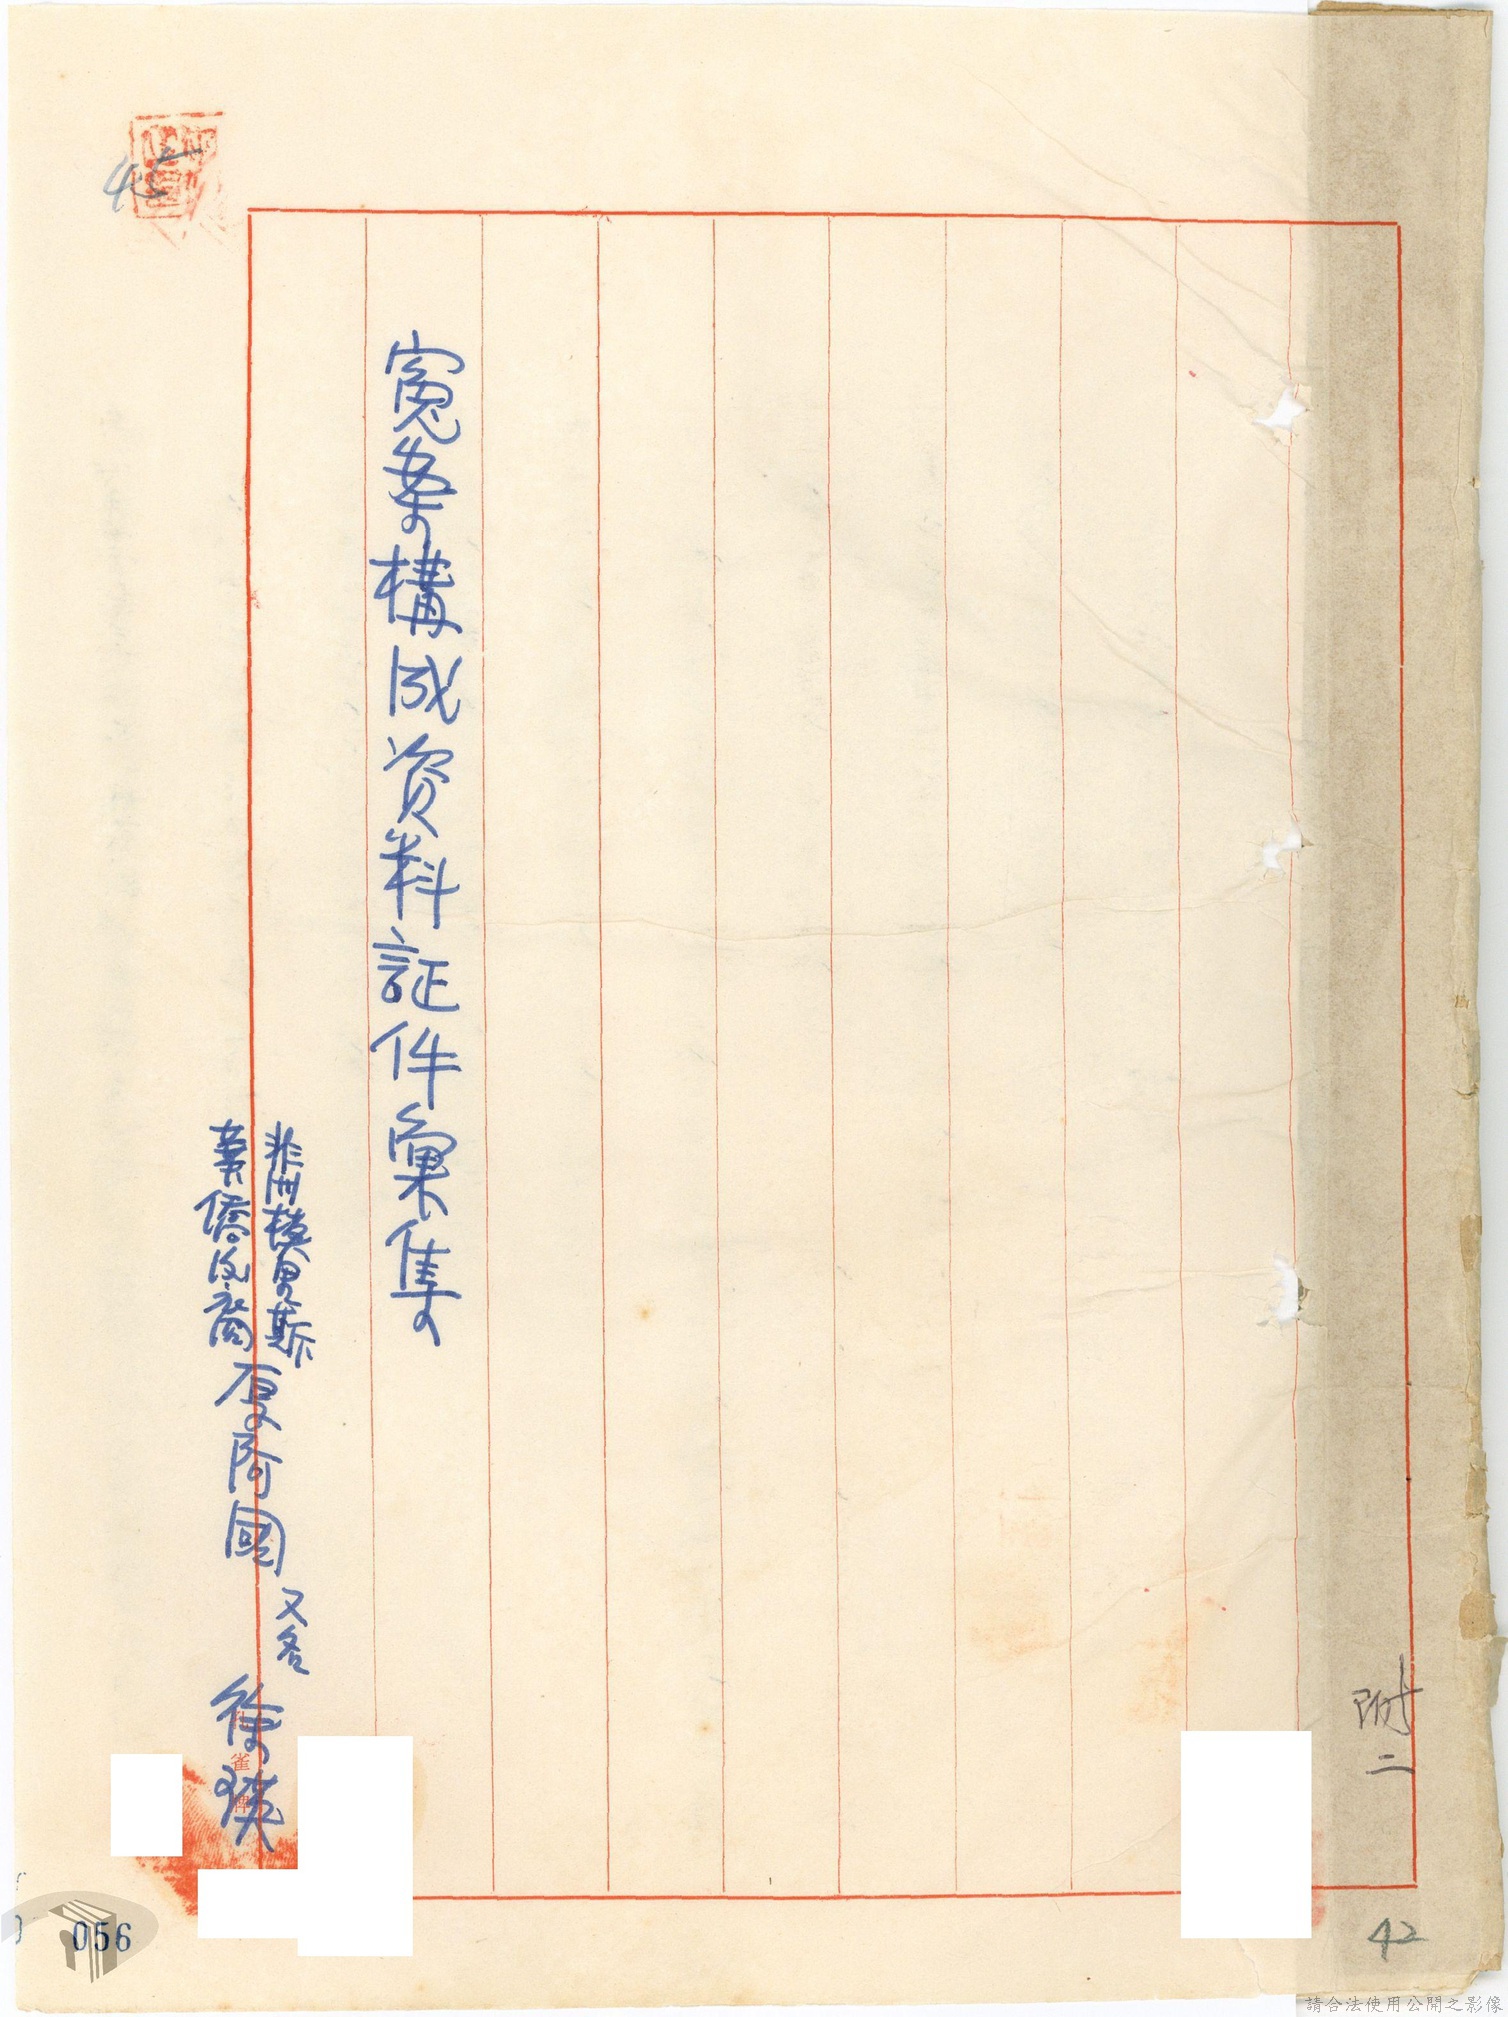 附二
冤案構成資料証件彙集
非洲模里斯
華僑後裔
厚阿國
又名
徐瑛
孔雀牌
45
42
056
請合法使用公開之影像